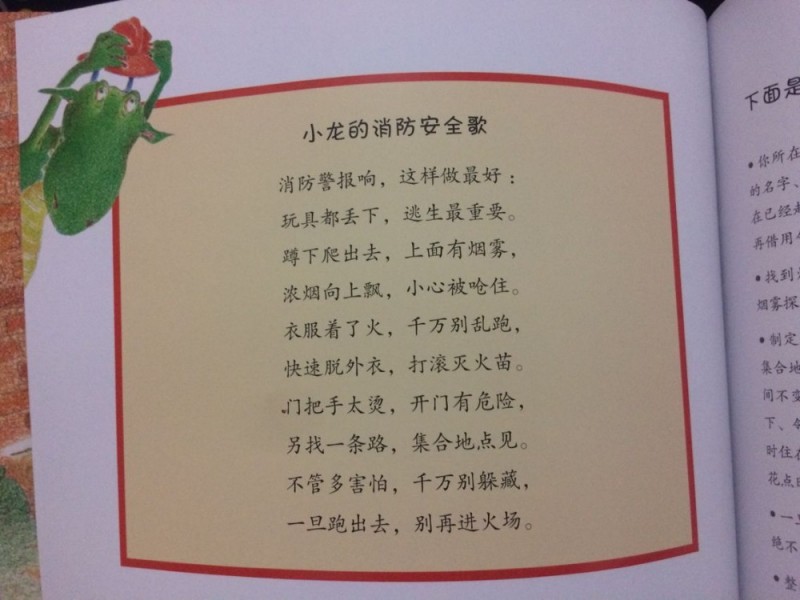 小龙的消防安全歌
消防警报响，这样做最好：
玩具都丢下，逃生最重要。
蹲下爬出去，上面有烟雾，
浓烟向上飘，小心被呛住。
衣服着了火，千万别乱跑，
快速脱外衣，打滚灭火苗。
门把手太烫，开门有危险，
另找一条路，集合地点见。
不管多害怕，千万别躲藏，
一旦跑出去，别再进火场。
下面是
•你所在
的名字、
在已经
再借用
•找到
烟雾探
•制定
集合地
间不变
下、
时住在
花点
•一旦
绝不
•整